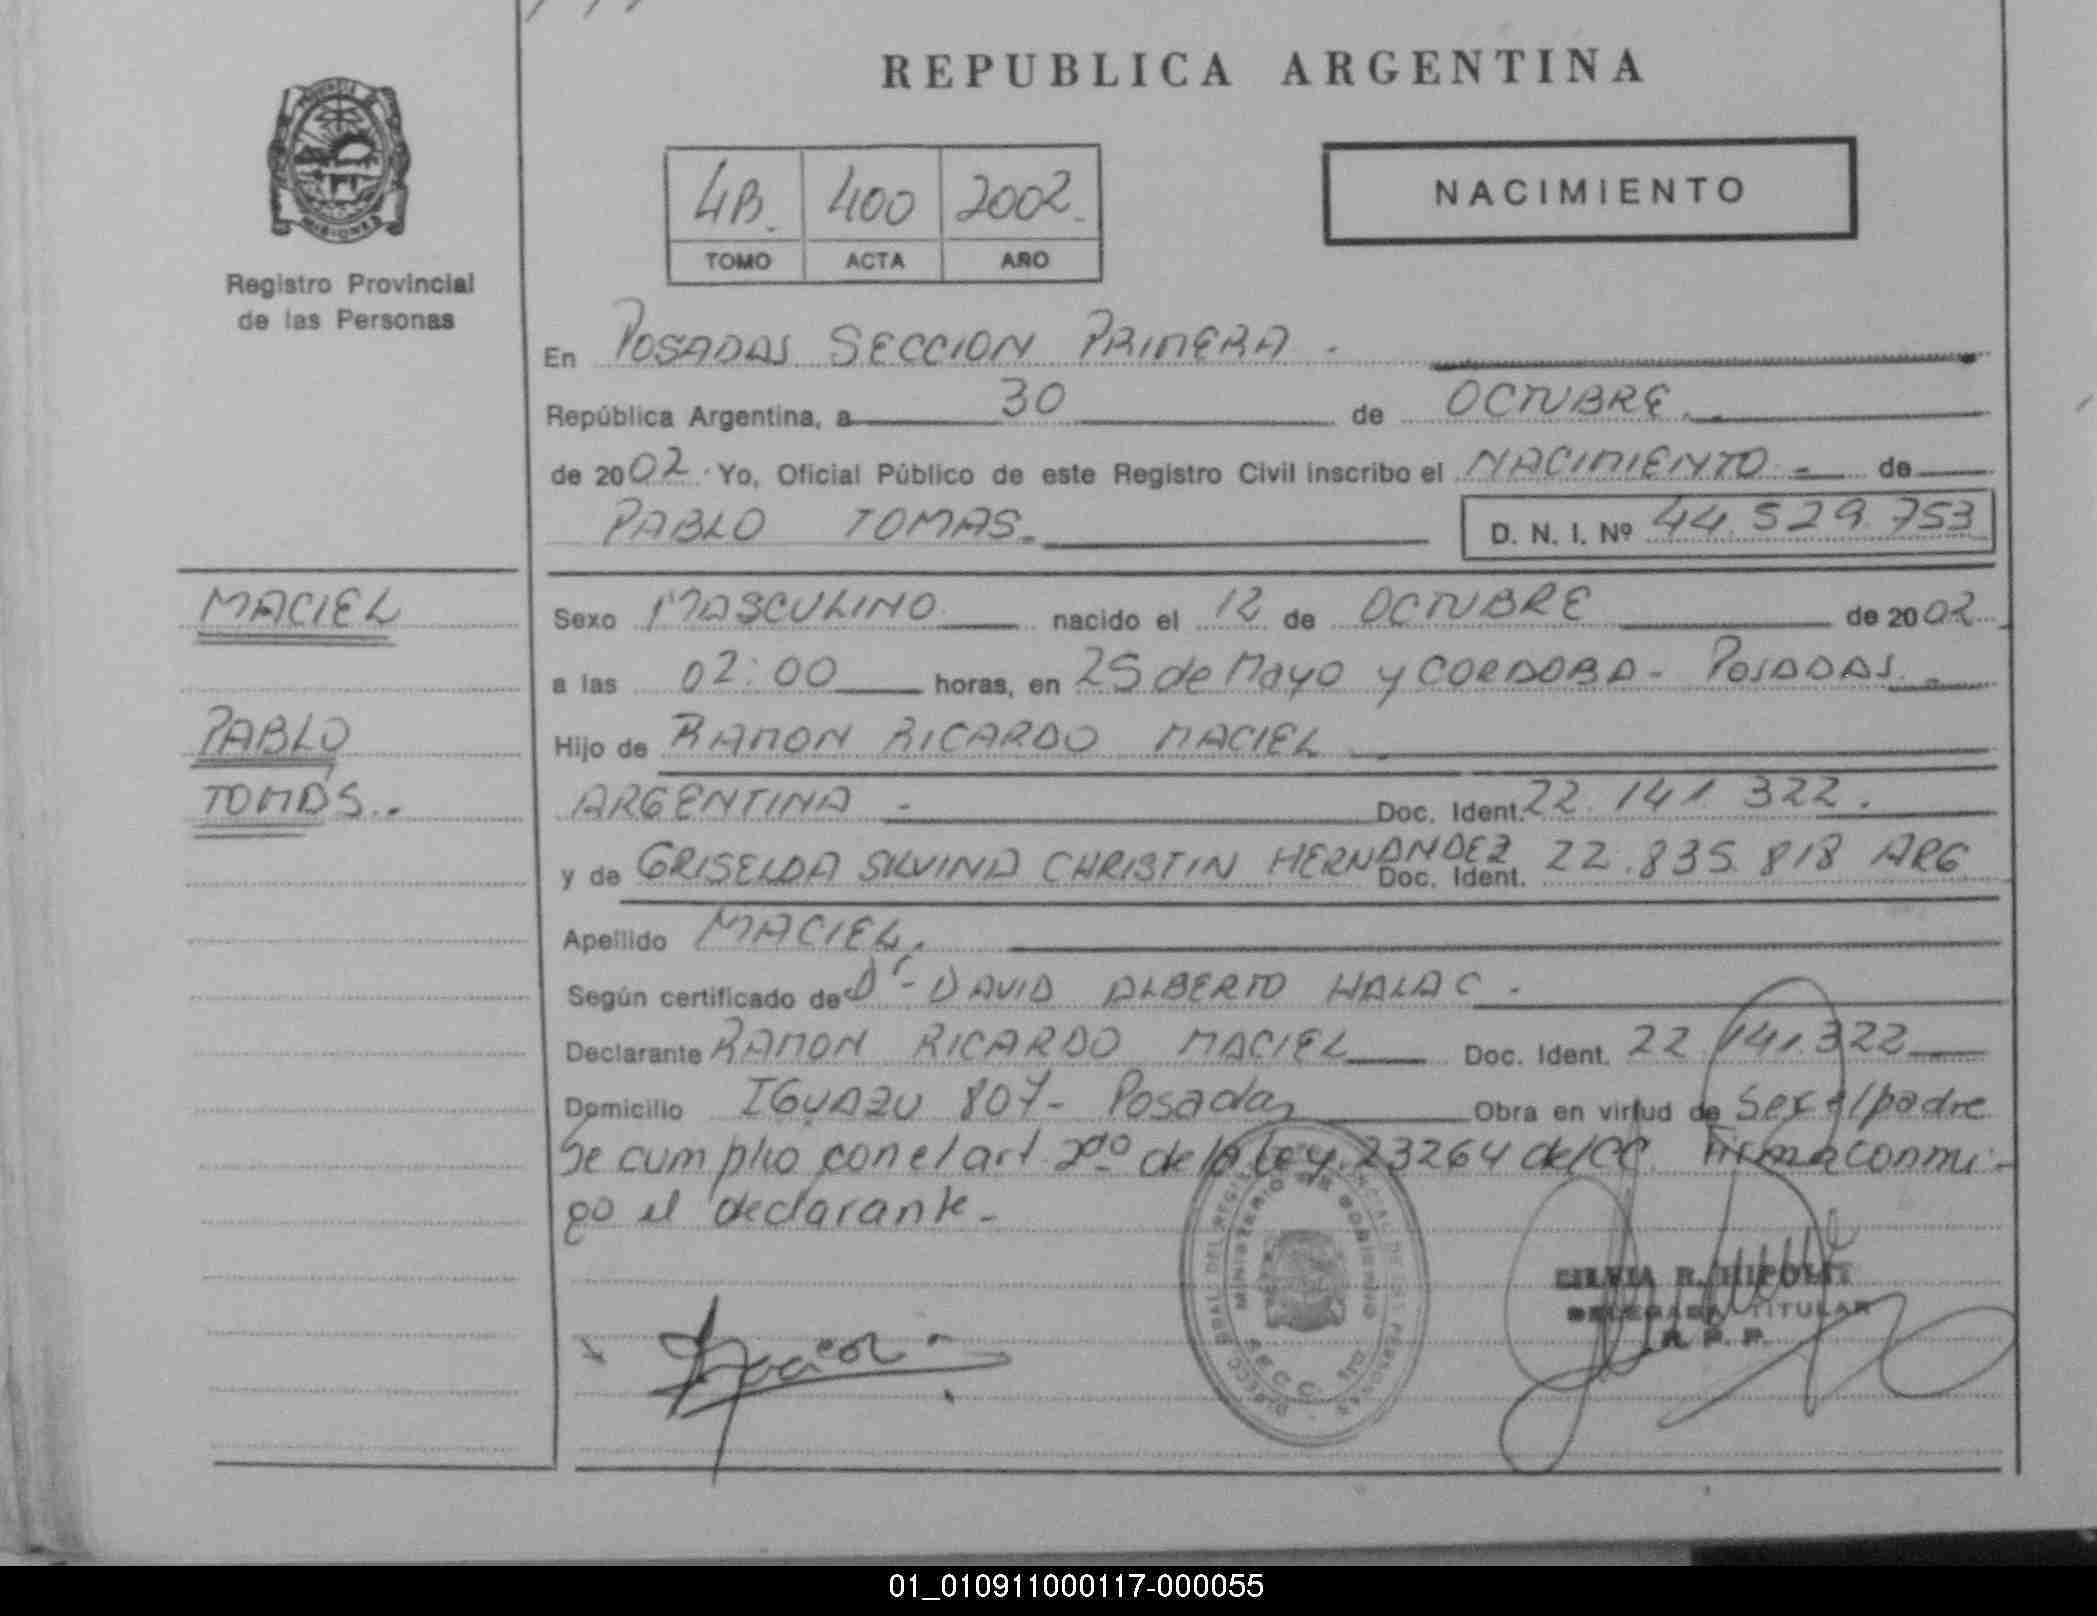 REPUBLICA ARGENTINA
4B. 400 2002.
TOMO ACTA AÑO
NACIMIENTO
Registro Provincial
de las Personas
En POSADAS SECCION PRIMERA.
República Argentina, a 30 de OCTUBRE.
de 2002. Yo, Oficial Público de este Registro Civil inscribo el NACIMIENTO - de
PABLO TOMAS.
D. N. I. Nº 44.529.753
MACIEL
PABLO
TOMÁS..
Sexo MASCULINO nacido el 12 de OCTUBRE de 2002
a las 02:00 horas, en 25 de Mayo y CORDOBA - POSADAS.
Hijo de RAMON RICARDO MACIEL
ARGENTINA - Doc. Ident. 22.141.322.
y de GRISELDA SILVINA CHRISTIN HERNANDEZ Doc. Ident. 22.835.818 ARG
Apellido MACIEL.
Según certificado de Dr- DAVID ALBERTO HALAC.
Declarante RAMON RICARDO MACIEL Doc. Ident. 22.141.322
Domicilio IGUAZU 807- Posadas Obra en virtud de Ser el padre
Se cumplio con el art 2do de la ley 23264 del CC. Firma conmi-
go el declarante-
MINISTERIO DE GOBIERNO
SILVIA R. HIPOLIT
DELEGADA TITULAR
R. P. P.
01_010911000117-000055